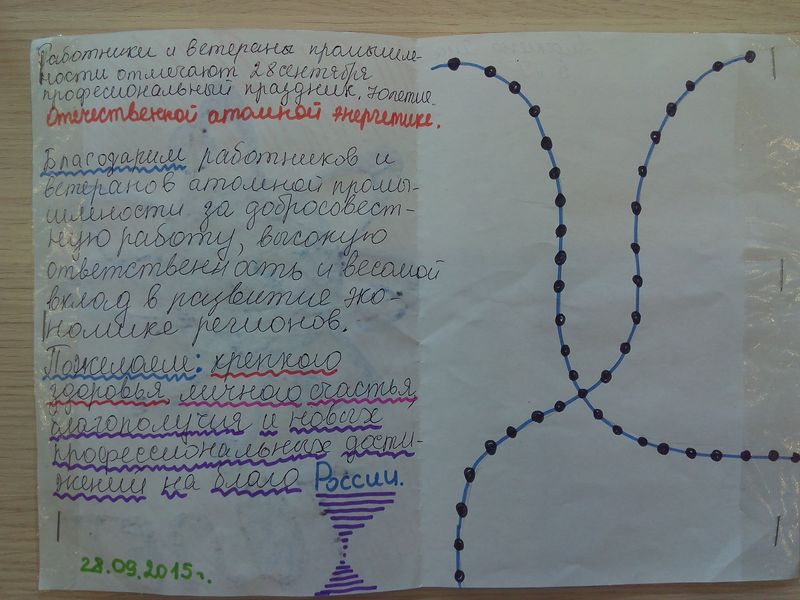 Работники и ветераны промышле-
ности отмечают 28 сентября
професиональный праздник. 70летие
Отечественной атомной энергетике.
Благодарим работников и
ветеранов атомной промы-
шлености за добросовест-
ную работу, высокую
ответственность и весомой
вклад в развитие эко-
номике регионов.
Пожелаем: крепкого
здоровья личного счастья,
благополучия и новых
профессиональных дости-
жений на благо России.
28.09.2015г.